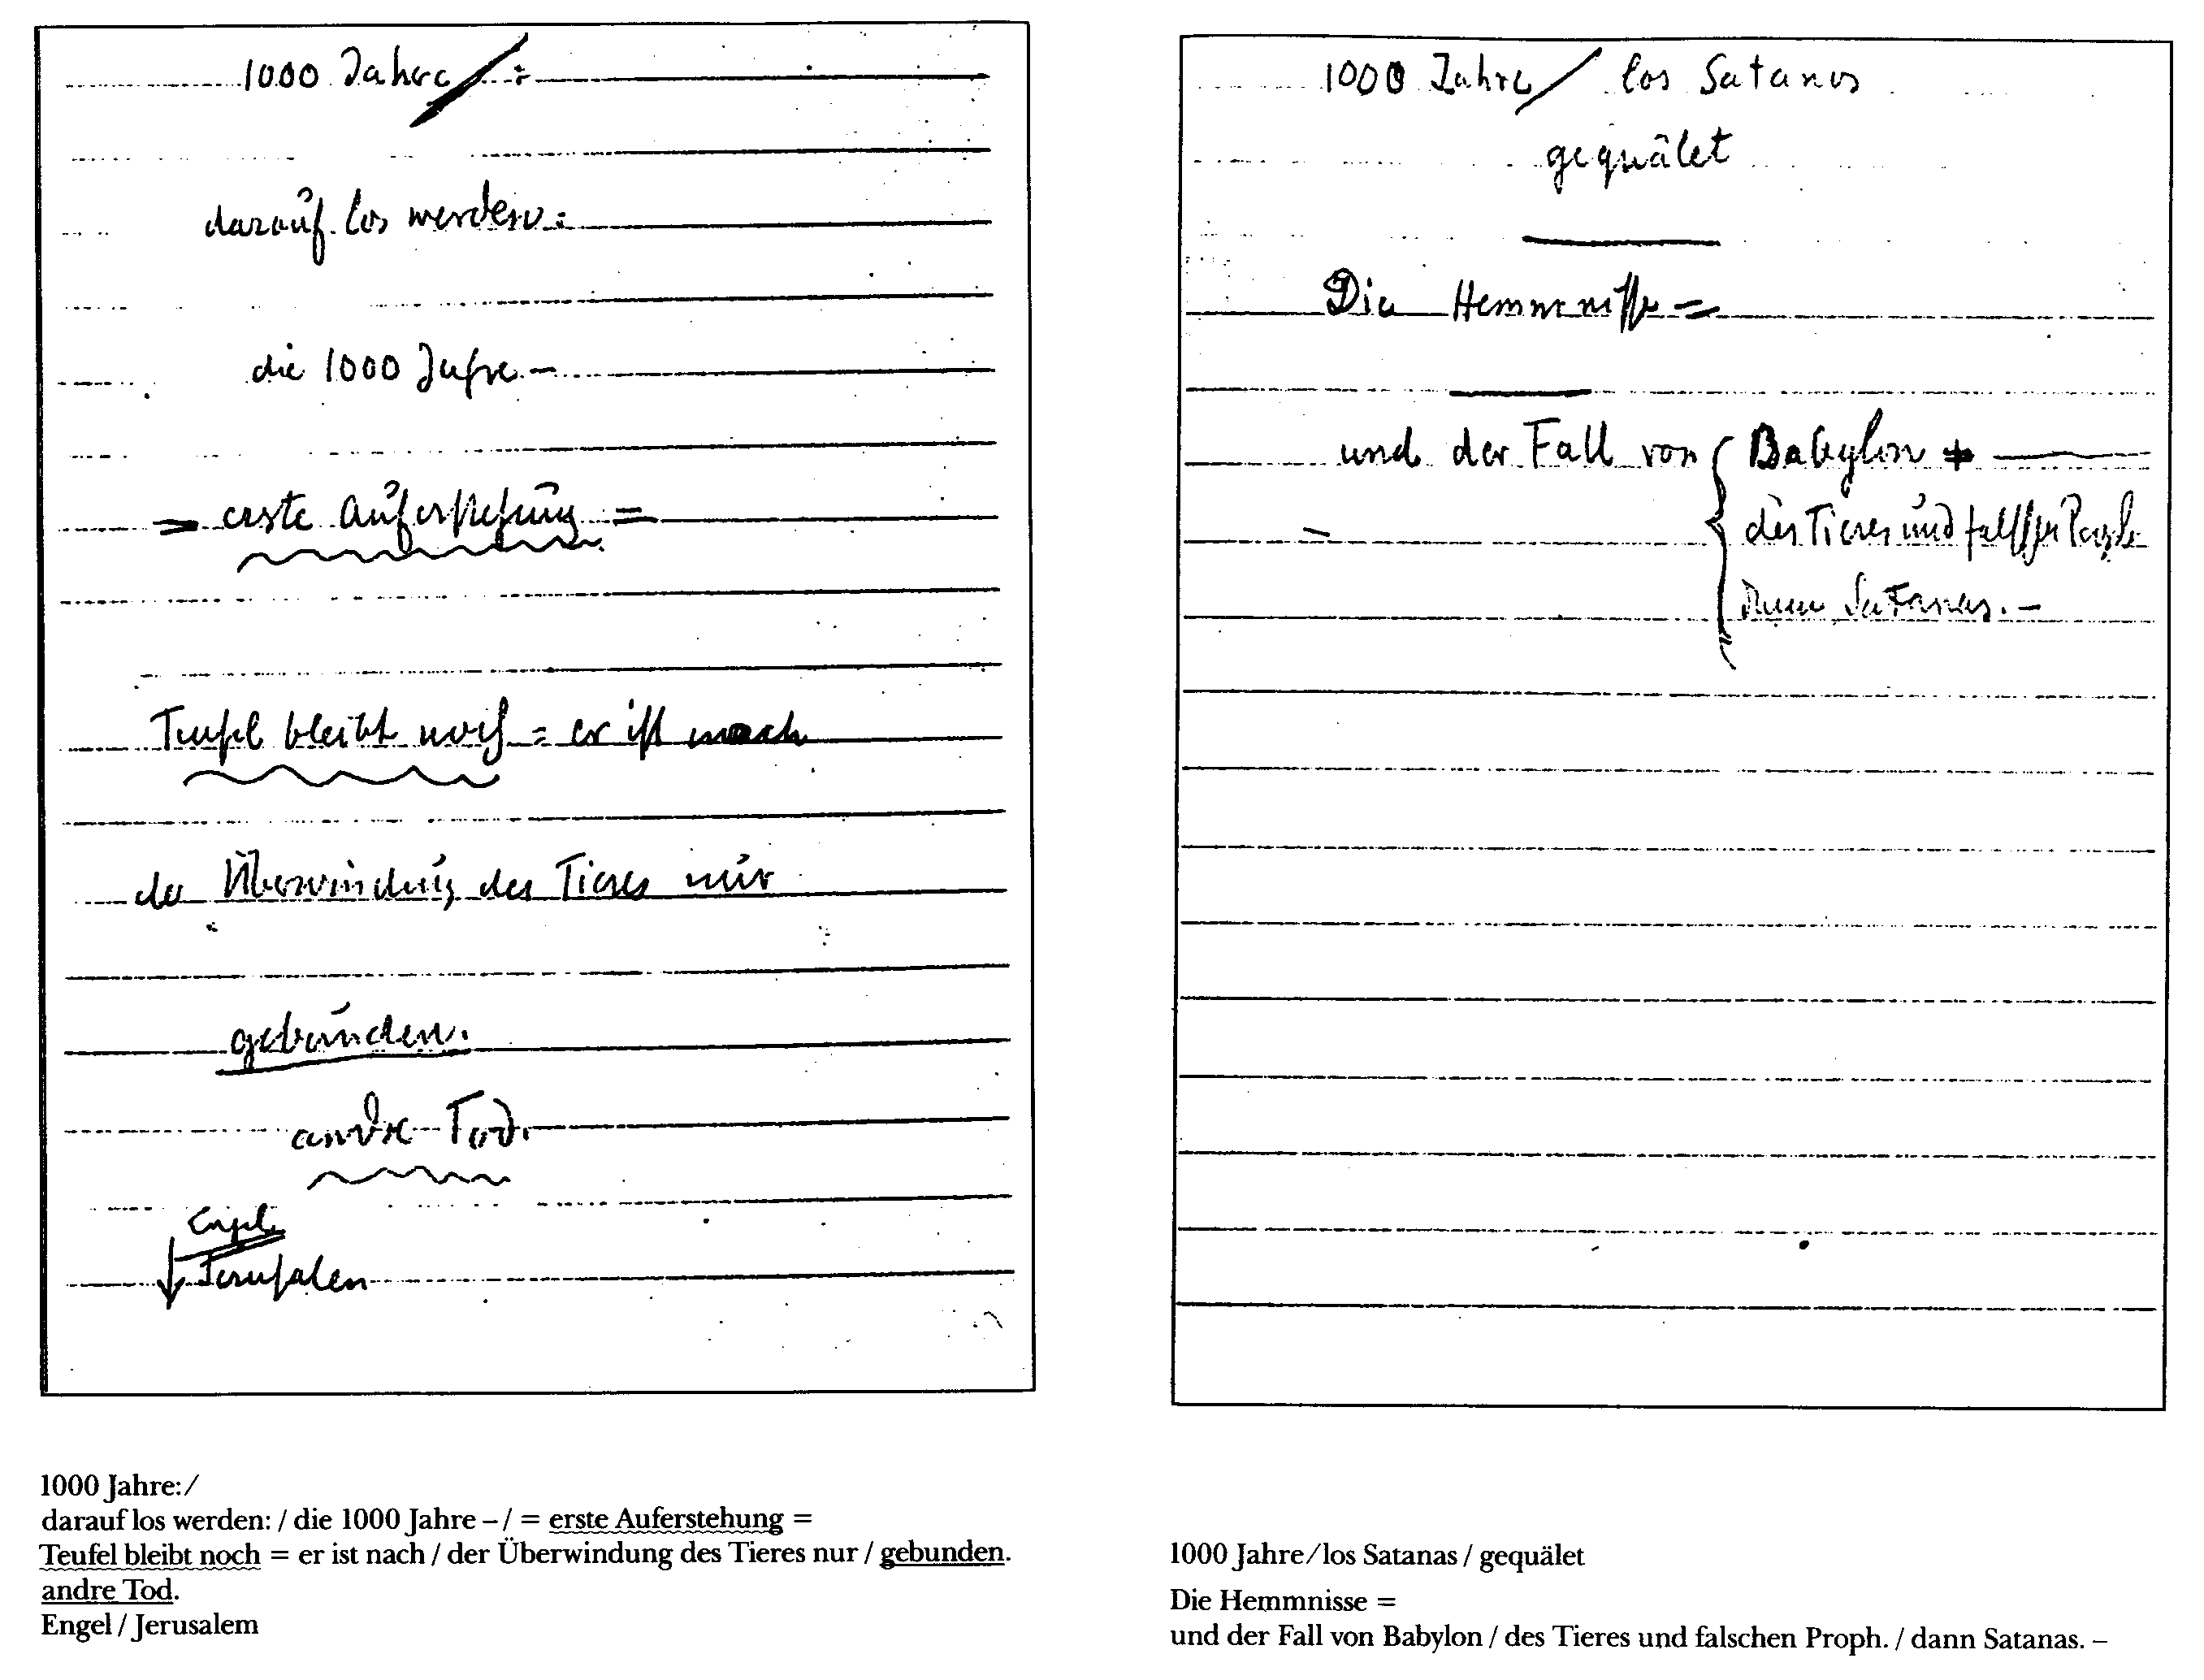 1000 Jahre :
darauf los werden:
die 1000 Jahre –
= erste Auferstehung =
Teufel bleibt noch = er ist nach
der Überwindung des Tieres nur
gebunden.
andre Tod.
Engel
Jerusalem
1000 Jahre:/
darauf los werden: / die 1000 Jahre – / = erste Auferstehung =
Teufel bleibt noch = er ist nach / der Überwindung des Tieres nur / gebunden.
andre Tod.
Engel / Jerusalem
1000 Jahre / los Satanas
gequälet
Die Hemmnisse =
und der Fall von { Babylon
des Tieres und falschen Proph.
dann Satanas. –
1000 Jahre/los Satanas / gequälet
Die Hemmnisse =
und der Fall von Babylon / des Tieres und falschen Proph. / dann Satanas. –